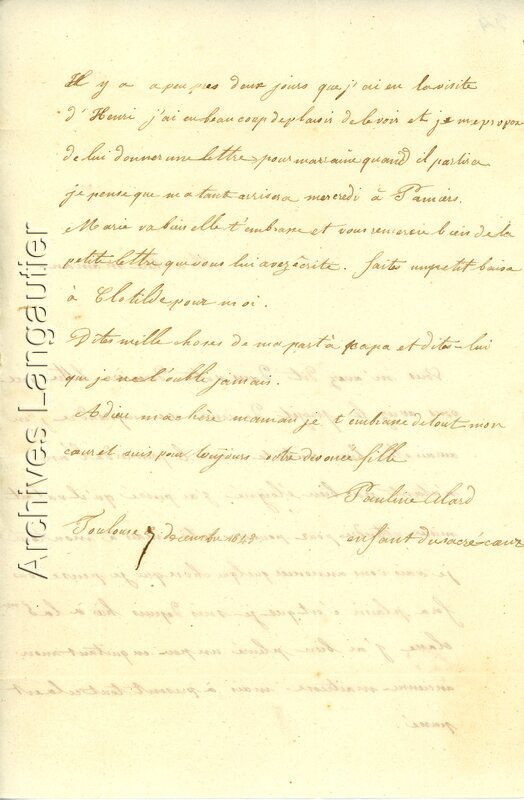 Il y a a peu pres deux jours que j'ai eu la visite
d'Henri j'ai eu beaucoup de plaisir de le voir et je me propose
de lui donner une lettre pour marraine quand il partira
je pense que ma tant arrivera mercredi à Pamiers.
Marie va bien elle t'embrasse et vous remercie bien de la
petite lettre que vous lui avez écrite. faites un petit baisé
à Clotilde pour moi.
Dites mille choses de ma part à papa et dites-lui
que je ne l'oublie jamais.
Adieu ma chère maman je t'embrasse de tout mon
cœur et suis pour toujours votre devouée fille
Pauline Alard
Toulouse 7 decembre 1843 enfant du sacré-cœur
Archives Langautier